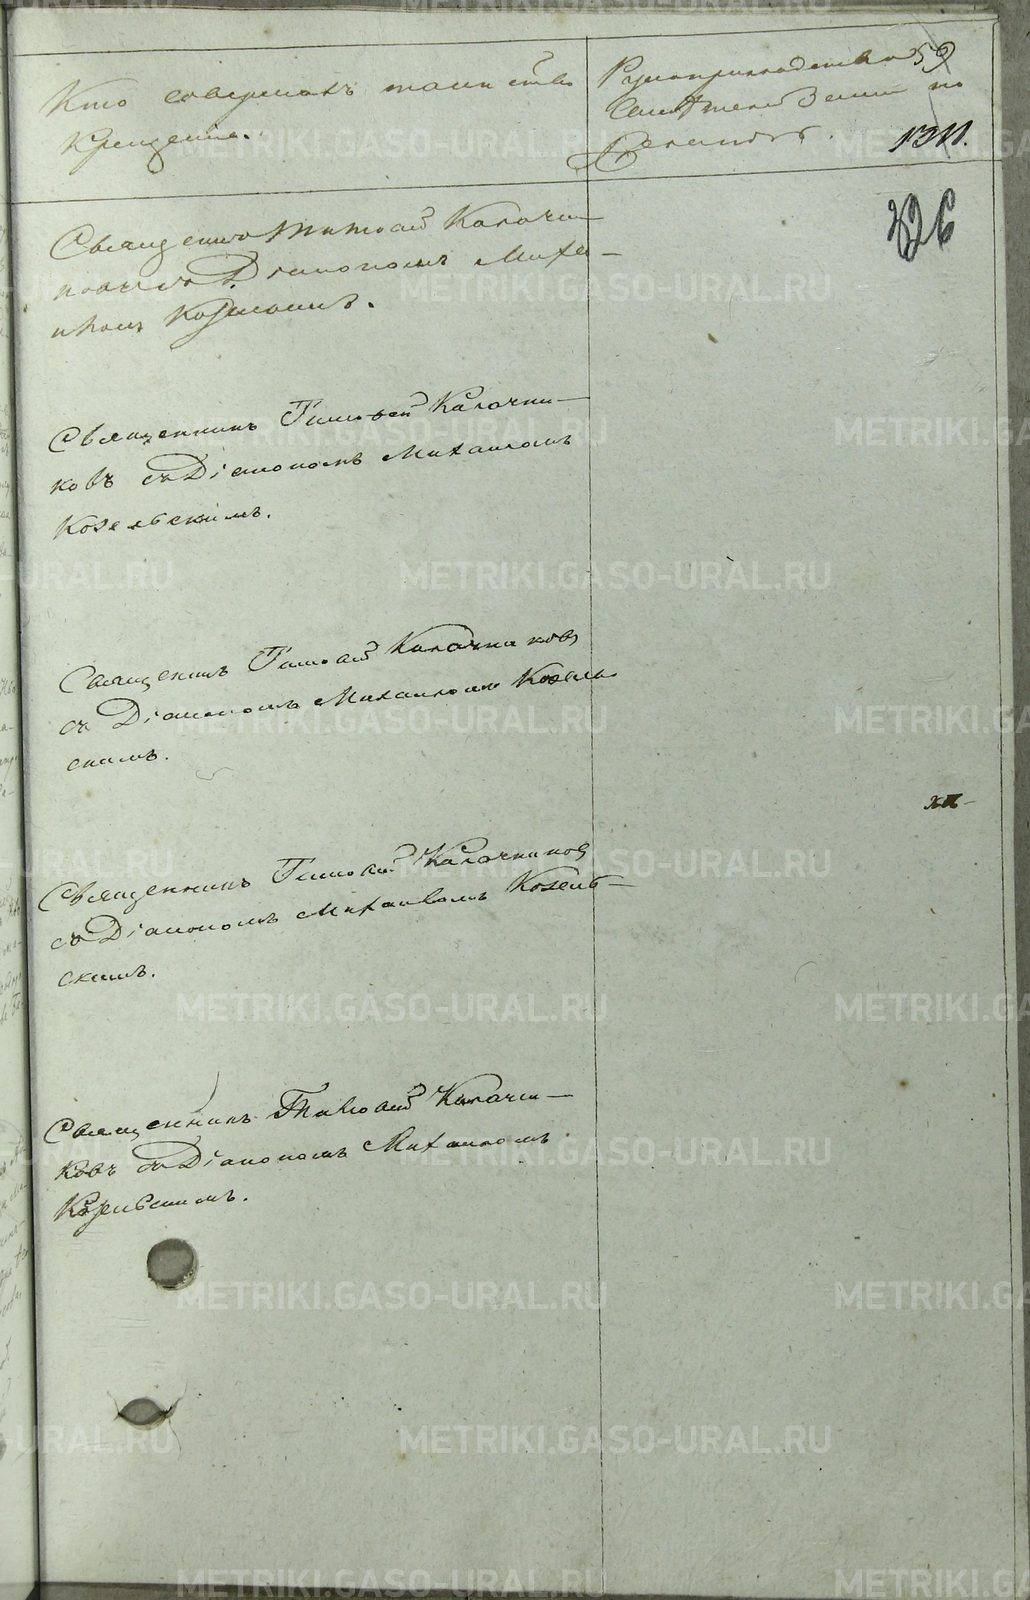 Кто совершалъ таинство
Крещенiя.
Рукоприкладство
по
59
1311.
326
Священно Тимофей Калачни-
ковъ съ Дiакономъ Миха-
иломъ
Священникъ Тимофей Калачни-
ковъ съ Дiакономъ Михаиломъ
Козельскимъ.
Священникъ Тимофей Калачниковъ
съ Дiакономъ Михаиломъ Козель-
скимъ.
Священникъ Тимофей Калачниковъ
съ Дiакономъ Михаиломъ Козель-
скимъ.
Священникъ Тимофей Калачни-
ковъ съ Дiакономъ Михаиломъ
Козельскимъ.
METRIKI.GASO-URAL.RU